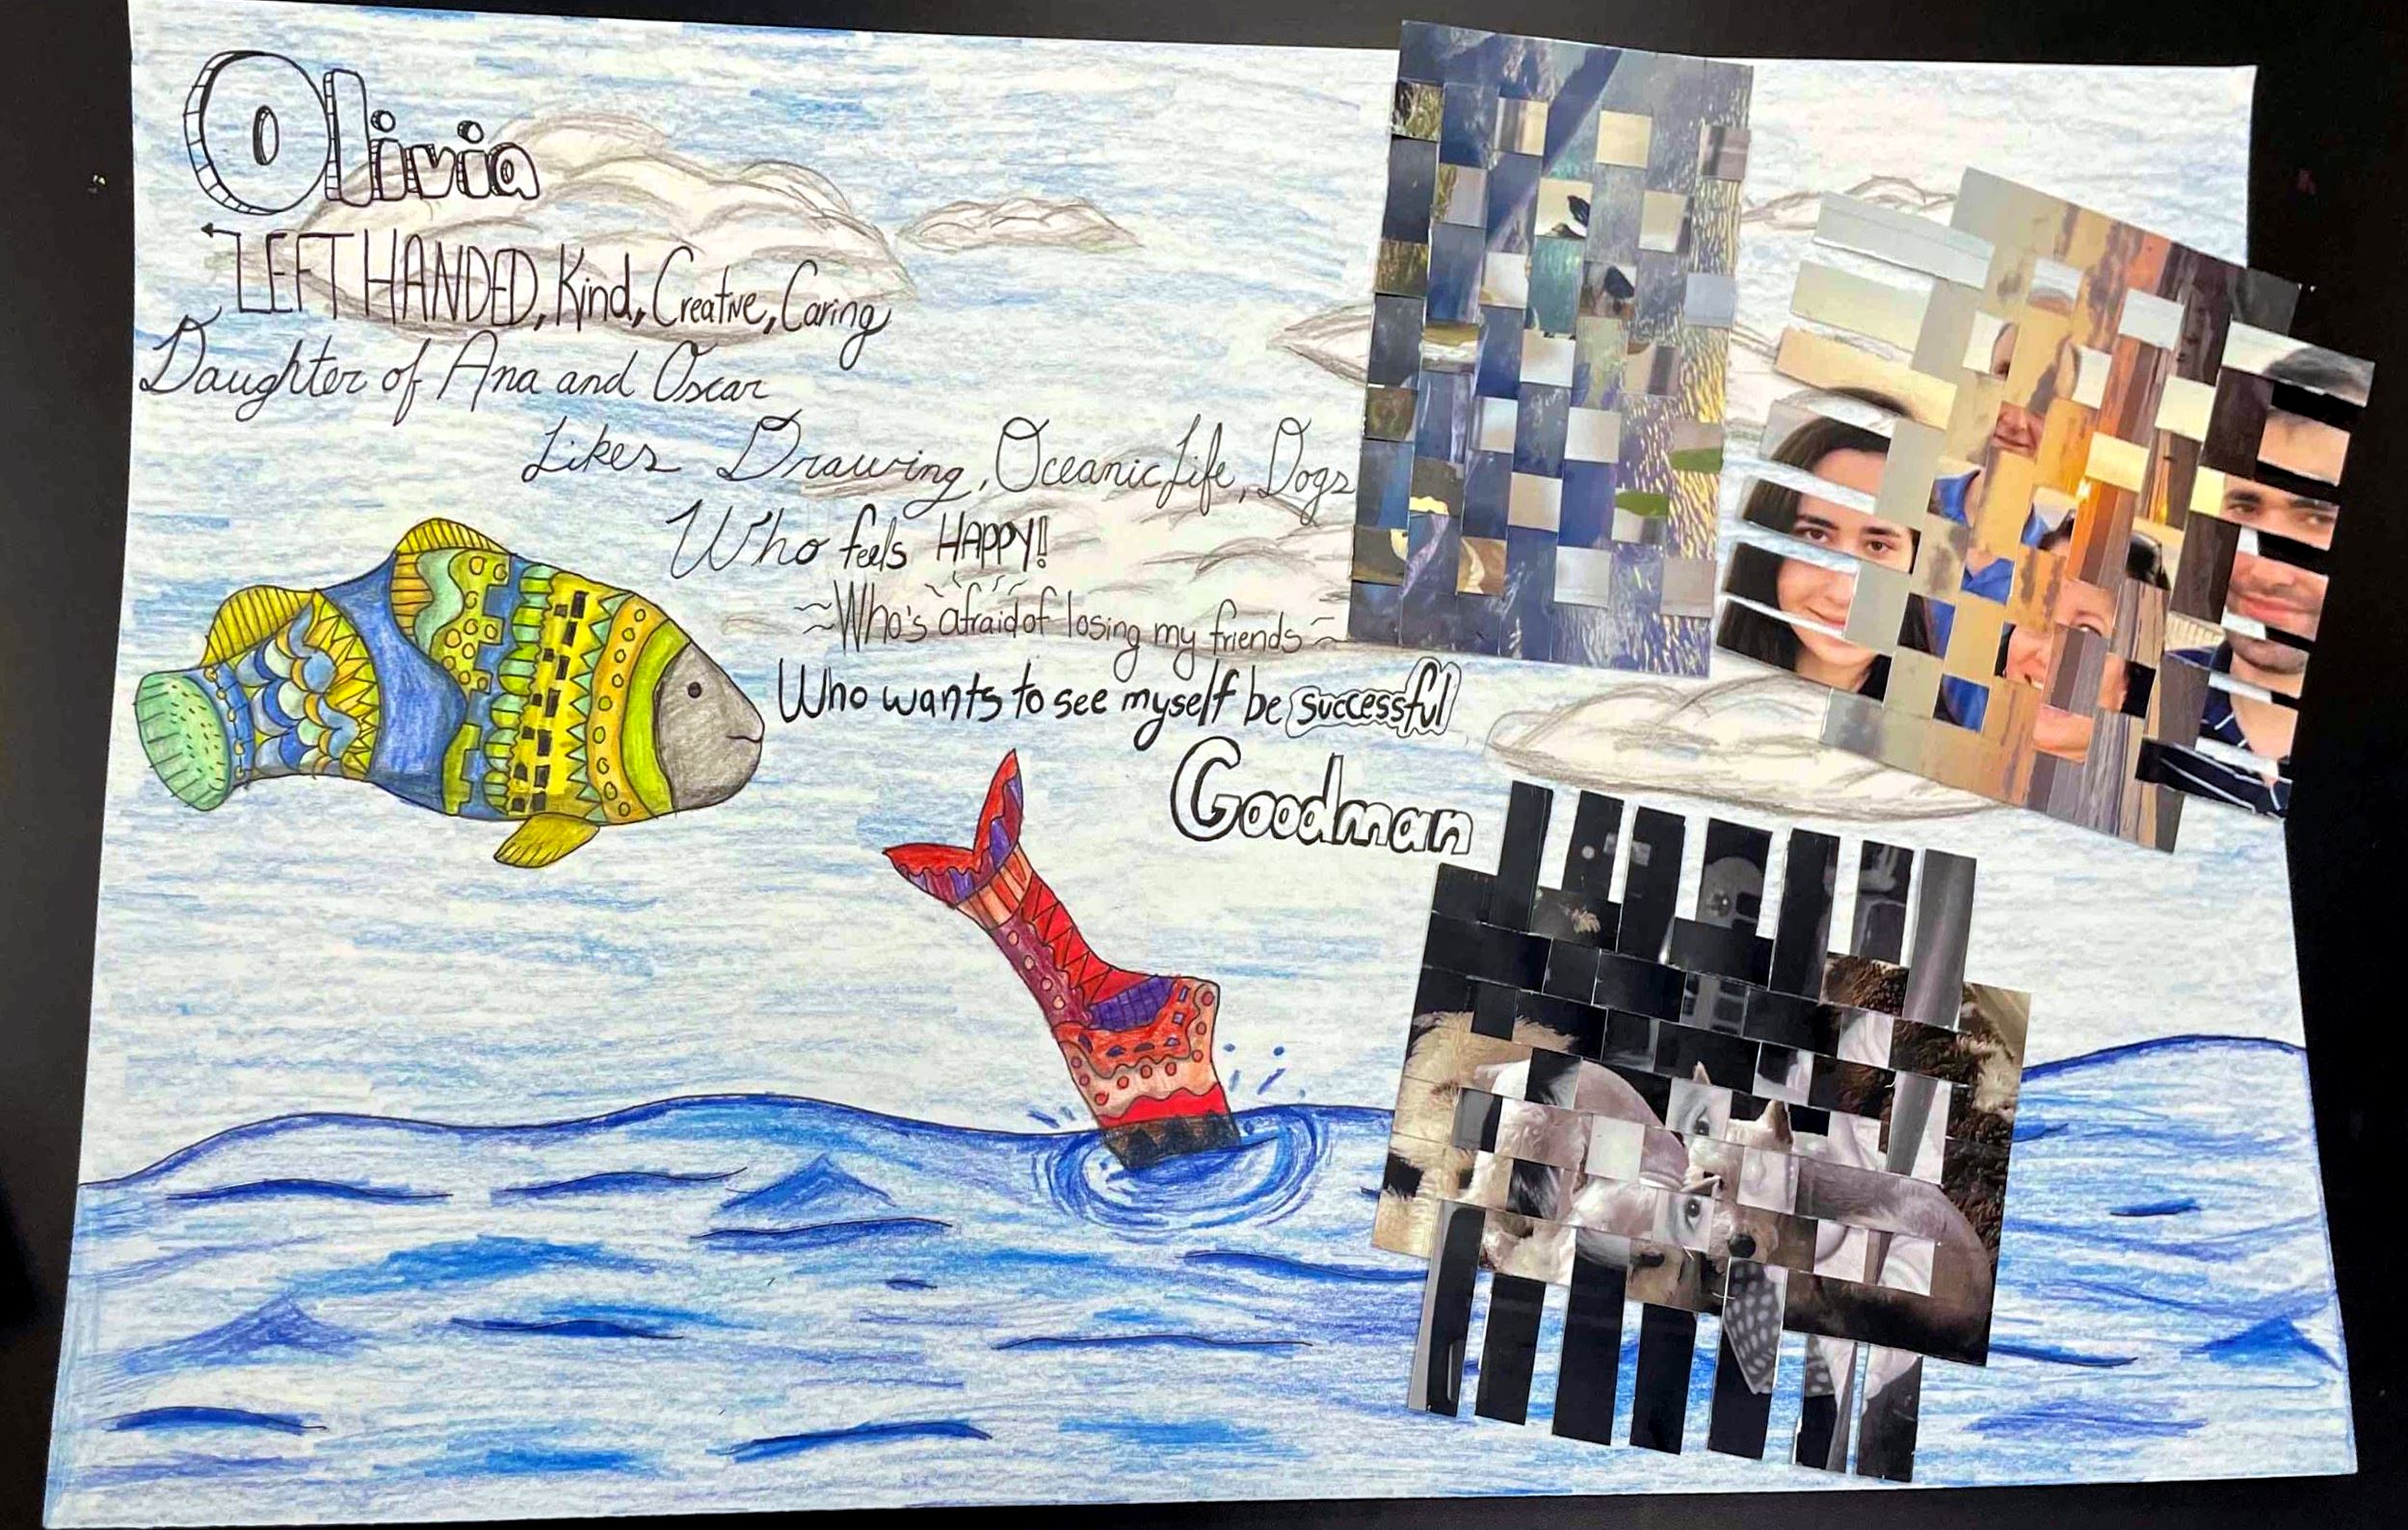 Olivia
LEFT HANDED, Kind, Creative, Caring
Daughter of Ana and Oscar
Likes Drawing, Oceanic Life, Dogs
Who feels HAPPY!!
~Who's afraid of losing my friends~
Who wants to see myself be successful
Goodman